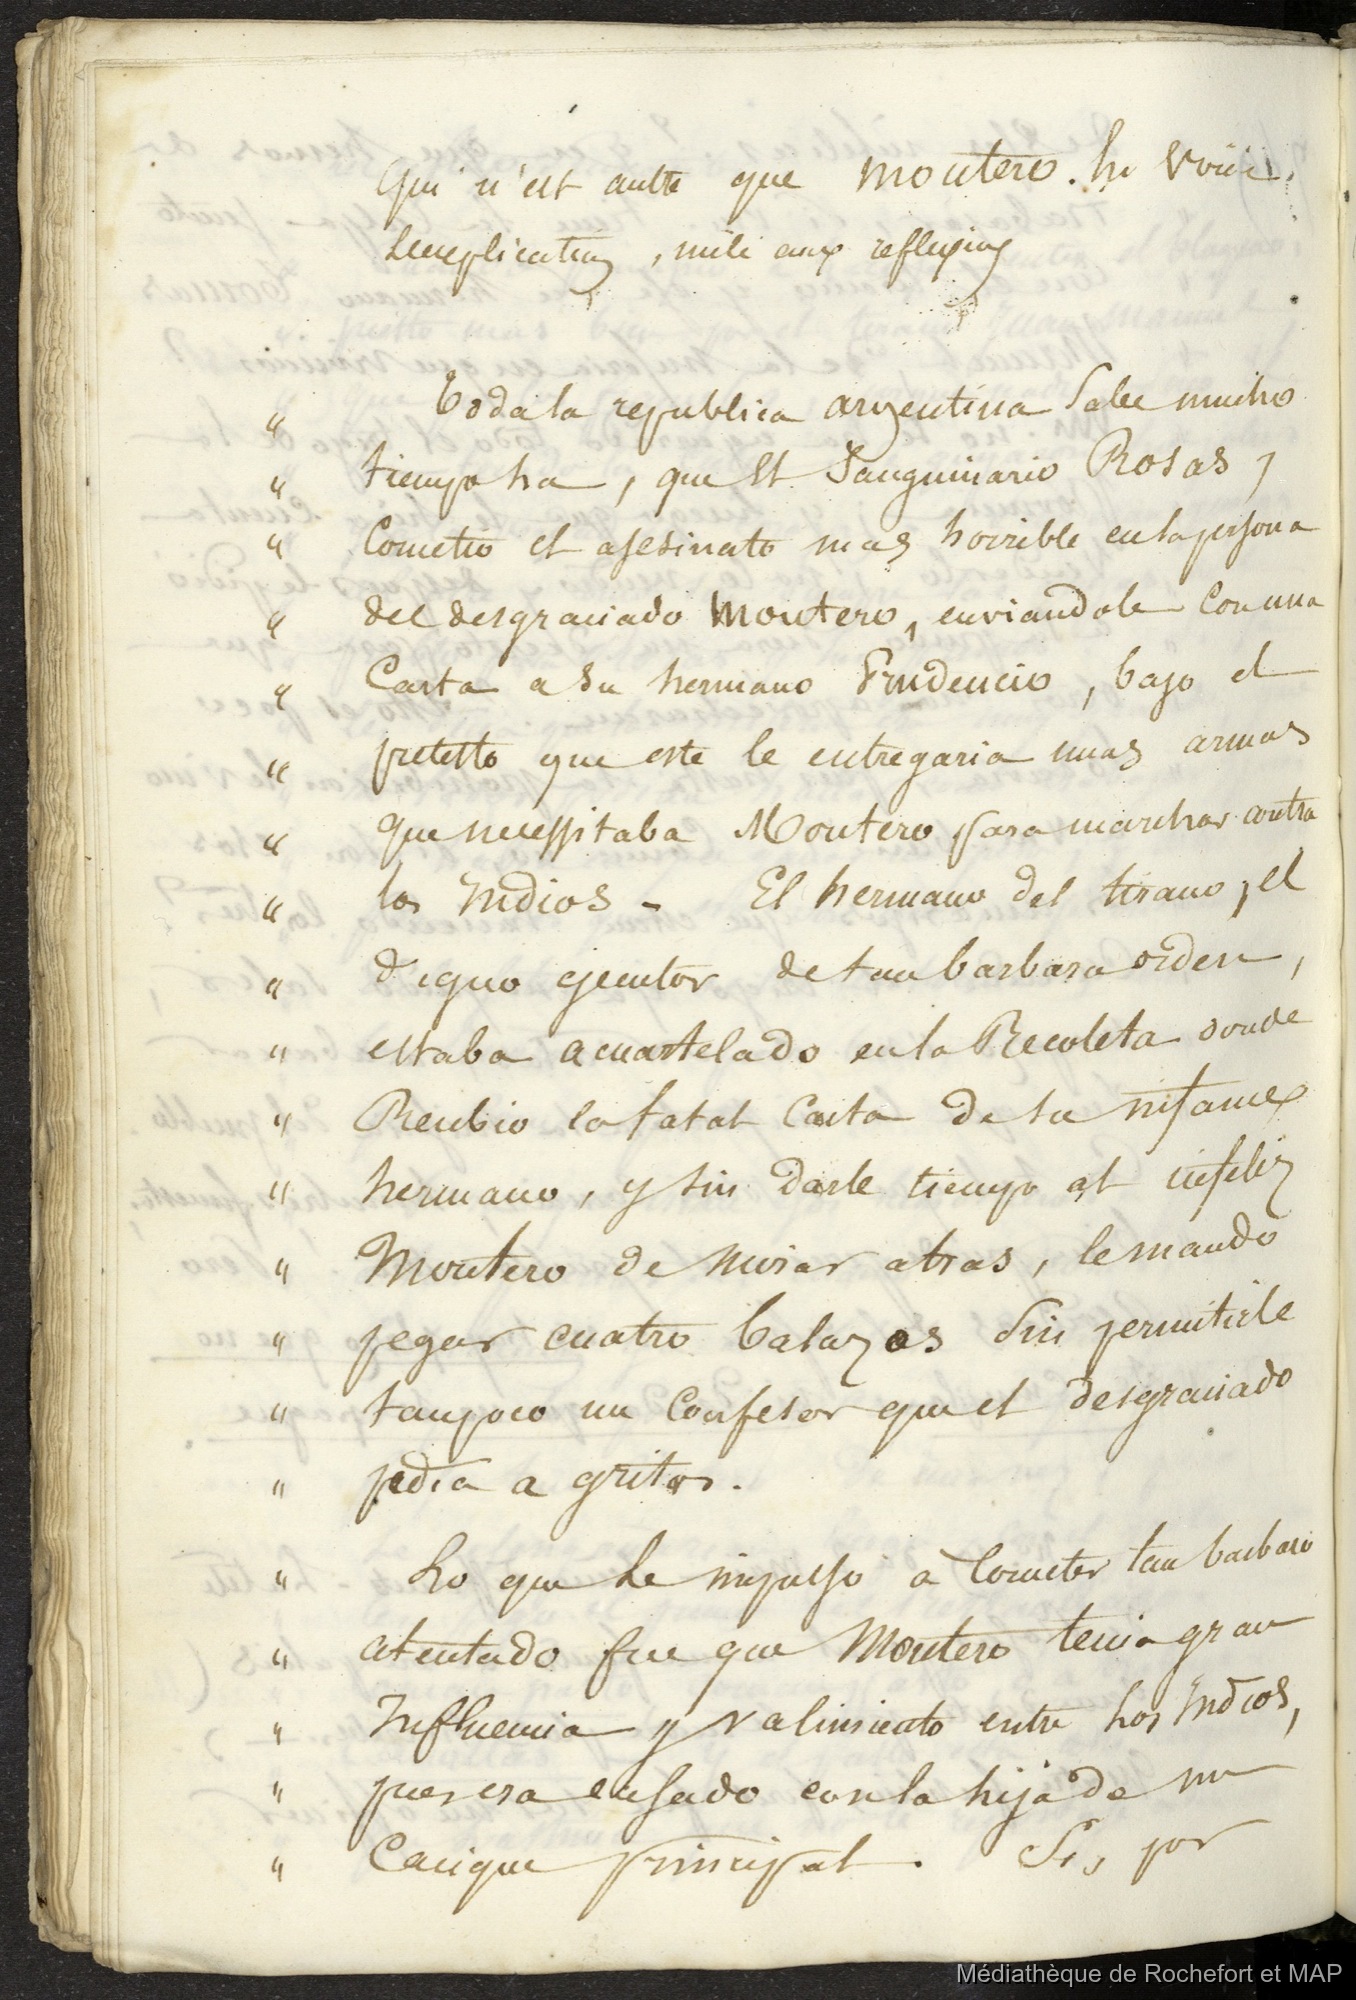 qui n'est autre que Montero. En voici
L'explication, mêlé aux reflexions
" Toda la republica argentina Sabe mucho
" tiempo ha, que El Sanguinario Rosas,
" Cometio el asesinato mas horrible en la persona
" del desgraciado Montero, enviandole Con una
" Carta a Su hermano Prudencio, bajo el
" pretesto que este le entregaria unas armas
" que necessitaba Montero para marchar contra
" los Indios - El hermano del tirano, el
" digno ejecutor de tan barbara orden,
" estaba acuartelado en la Recoleta donde
" Recibio la fatal Carta de su infame
" hermano, y sin darle tiempo al infeliz
" Montero de mirar atras, le mando
" pegar cuatro balazos Sin permitirle
" tanpoco un Confesor que el desgraciado
" pedia a gritos.
" Lo que Le impulso à Cometer tan barbaro
" atentado fue que Montero tenia gran
" Influencia y valimiento entre Los Indios,
" pues era casado con la hija de un
" Cacique principal. Si, por
Médiathèque de Rochefort et MAP